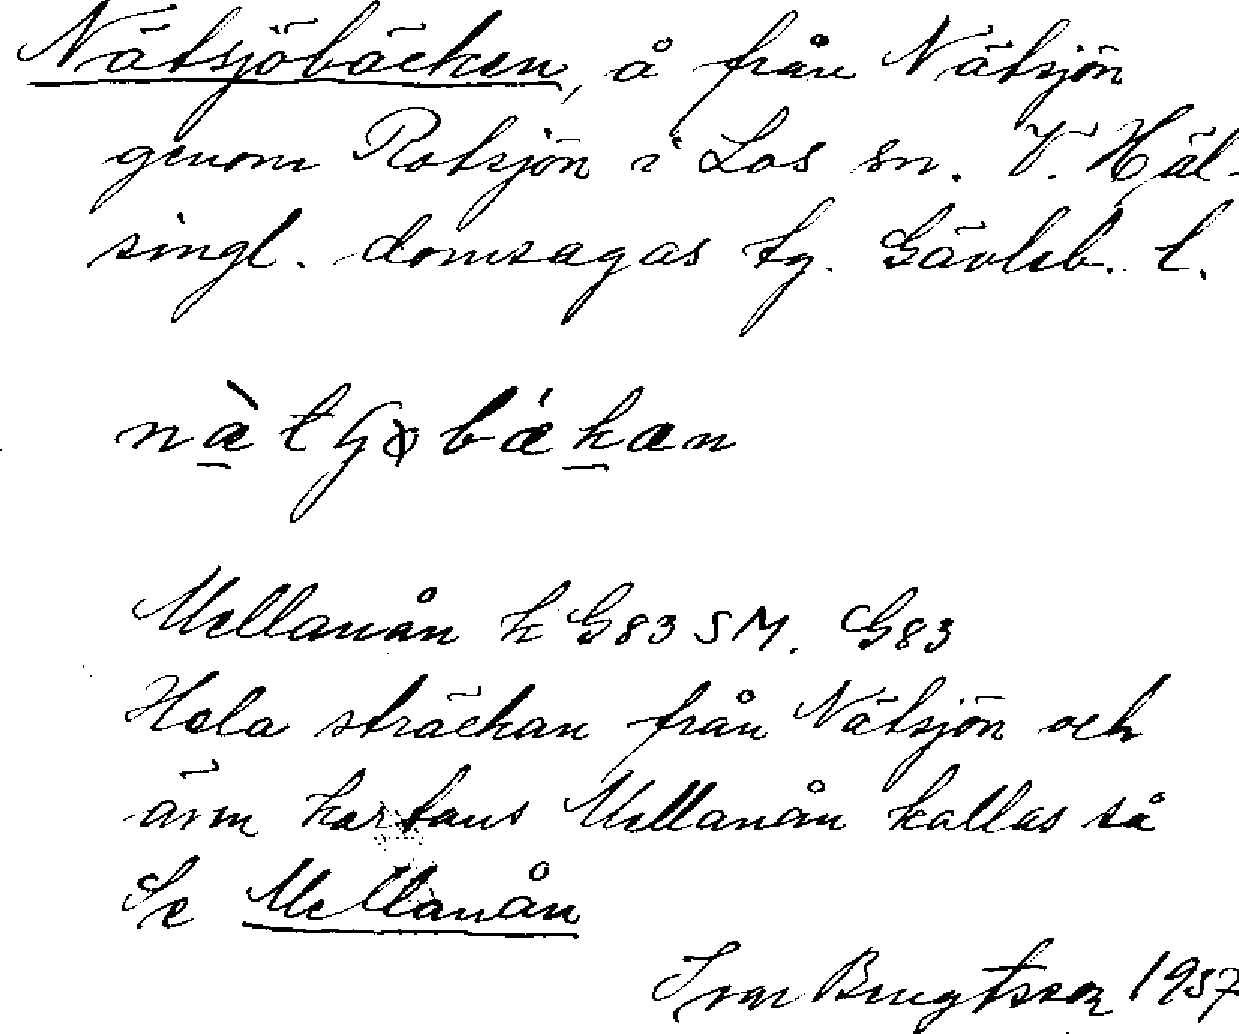 Nätsjöbäcken, å från Nätsjön
genom Rotsjön i Los sn. V. Häl-
singl. domsagas tg. Gävleb. l.
Mellanån k G83 SM. G83
Hela sträckan från Nätsjön och
även kartans Mellanån kallas så
Se Mellanån
Ivar Bengtsson 1957